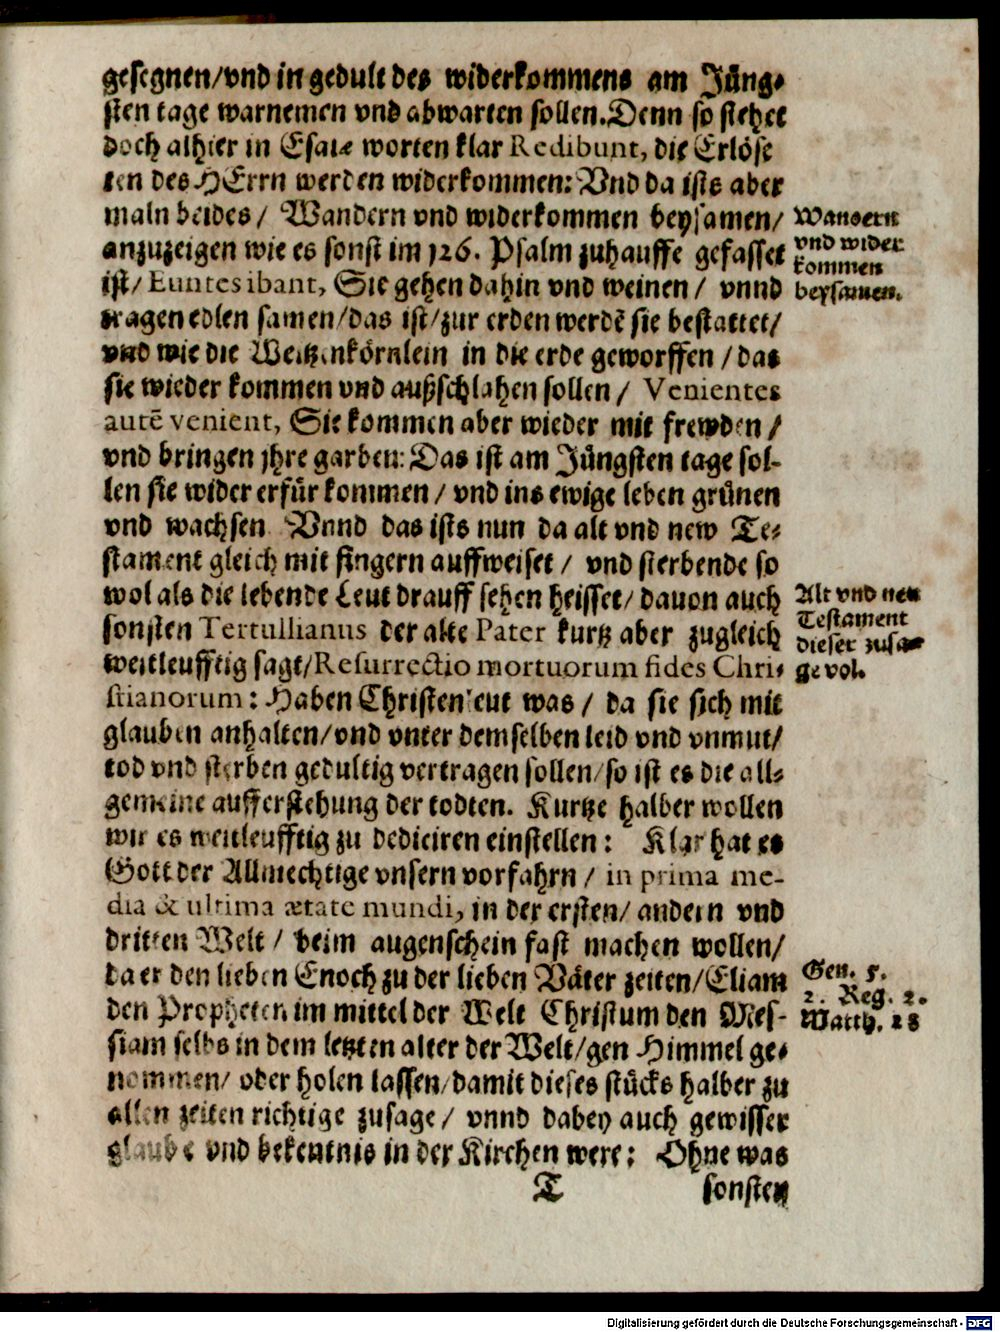 gesegnen/vnd in gedult des widerkommens am Jüng-
sten tage warnemen vnd abwarten sollen. Denn so stehet
doch alhier in Esaiæ worten klar Redibunt, die Erlöse
ten des HErrn werden widerkommen: Vnd da ists aber
maln beides / Wandern vnd widerkommen beysamen/
anzuzeigen wie es sonst im 126. Psalm zuhauffe gefasset
ist/ Euntes ibant, Sie gehen dahin vnd weinen / vnnd
tragen edlen samen/das ist/zur erden werdē sie bestattet/
vnd wie die Weitzenkörnlein in die erde geworffen / das
sie wieder kommen vnd außschlahen sollen / Venientes
autē venient, Sie kommen aber wieder mit frewden /
vnd bringen jhre garben: Das ist am Jüngsten tage sol-
len sie wider erfür kommen / vnd ins ewige leben grünen
vnd wachsen Vnnd das ists nun da alt vnd new Te-
stament gleich mit fingern auffweiset / vnd sterbende so
wol als die lebende Leut drauff sehen heisset/ dauon auch
sonsten Tertullianus der alte Pater kurtz aber zugleich
weitleufftig sagt/Resurrectio mortuorum fides Chri-
stianorum: Haben Christenleut was / da sie sich mit
glauben anhalten/vnd vnter demselben leid vnd vnmut/
tod vnd sterben gedultig vertragen sollen/so ist es die all-
gemeine aufferstehung der todten. Kurtze halber wollen
wir es weitleufftig zu dediciren einstellen: Klar hat es
Gott der Allmechtige vnsern vorfahrn / in prima me-
dia & ultima ætate mundi, in der ersten/ andern vnd
dritten Welt / beim augenschein fast machen wollen/
da er den lieben Enoch zu der lieben Väter zeiten/Eliam
den Propheten im mittel der Welt Christum den Mes-
siam selbs in dem letzten alter der Welt/gen Himmel ge-
nommen/ oder holen lassen/damit dieses stücks halber zu
allen zeiten richtige zusage / vnnd dabey auch gewisser
glaube vnd bekentnis in der Kirchen were: Ohne was
T sonsten
Wandern
vnd wider
kommen
beysamen.
Alt vnd new
Testament
dieser zusa-
ge vol.
Gen. 5.
2. Reg. 2.
Matth. 28
Digitalisierung gefördert durch die Deutsche Forschungsgemeinschaft - DFG